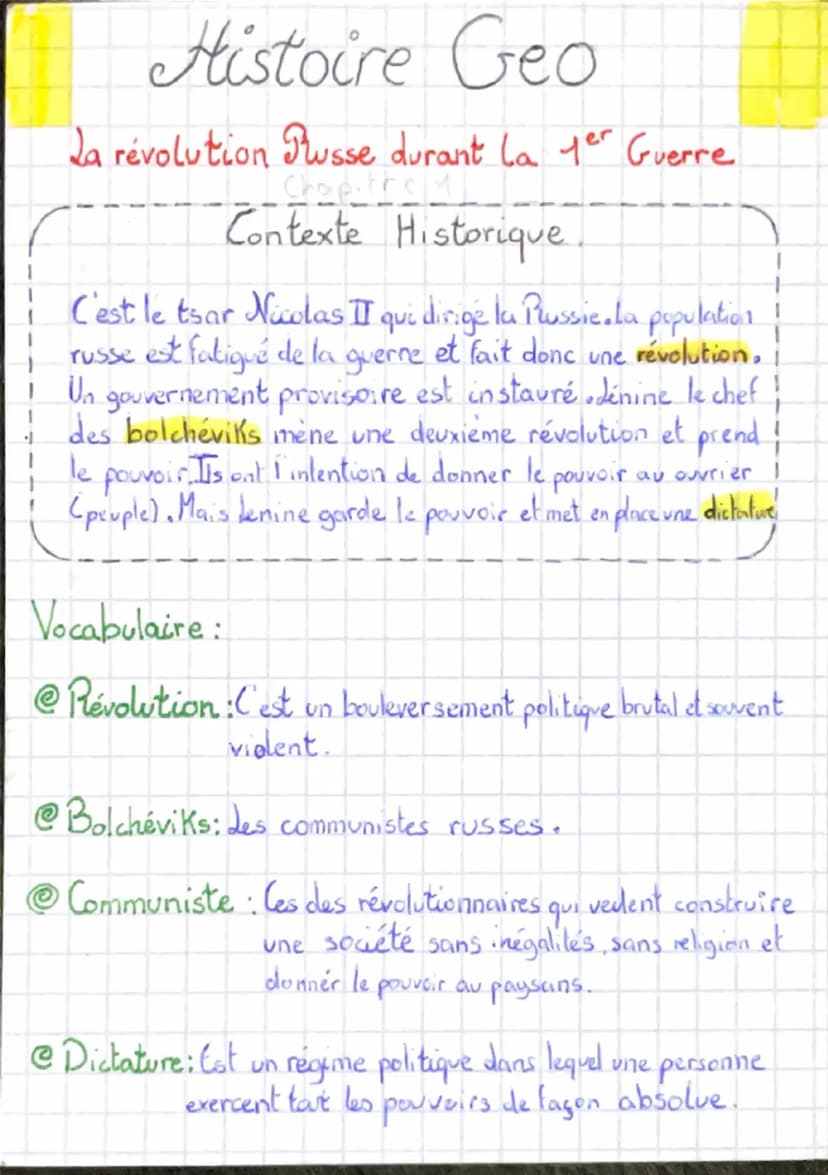 Histoire Geo
La révolution Russe durant la 1er Guerre
Chapitre 1
Contexte Historique.
C'est le tsar Nicolas II qui dirige la Russie. La population
russe est fatigué de la guerre et fait donc une révolution.
Un gouvernement provisoire est instauré. Lénine le chef
des bolchéviks mène une deuxième révolution et prend
le pouvoir. Ils ont l'intention de donner le pouvoir au ouvrier
(peuple). Mais Lenine garde le pouvoir et met en place une dictature
Vocabulaire :
@ Révolution : C'est un bouleversement politique brutal et souvent
violent.
@ Bolchéviks : Les communistes russes.
@ Communiste : Ces des révolutionnaires qui veulent construire
une société sans inégalités, sans religion et
donnér le pouvoir au paysans.
@ Dictature : Est un régime politique dans lequel une personne
exercent tout les pouvoirs de façon absolue.